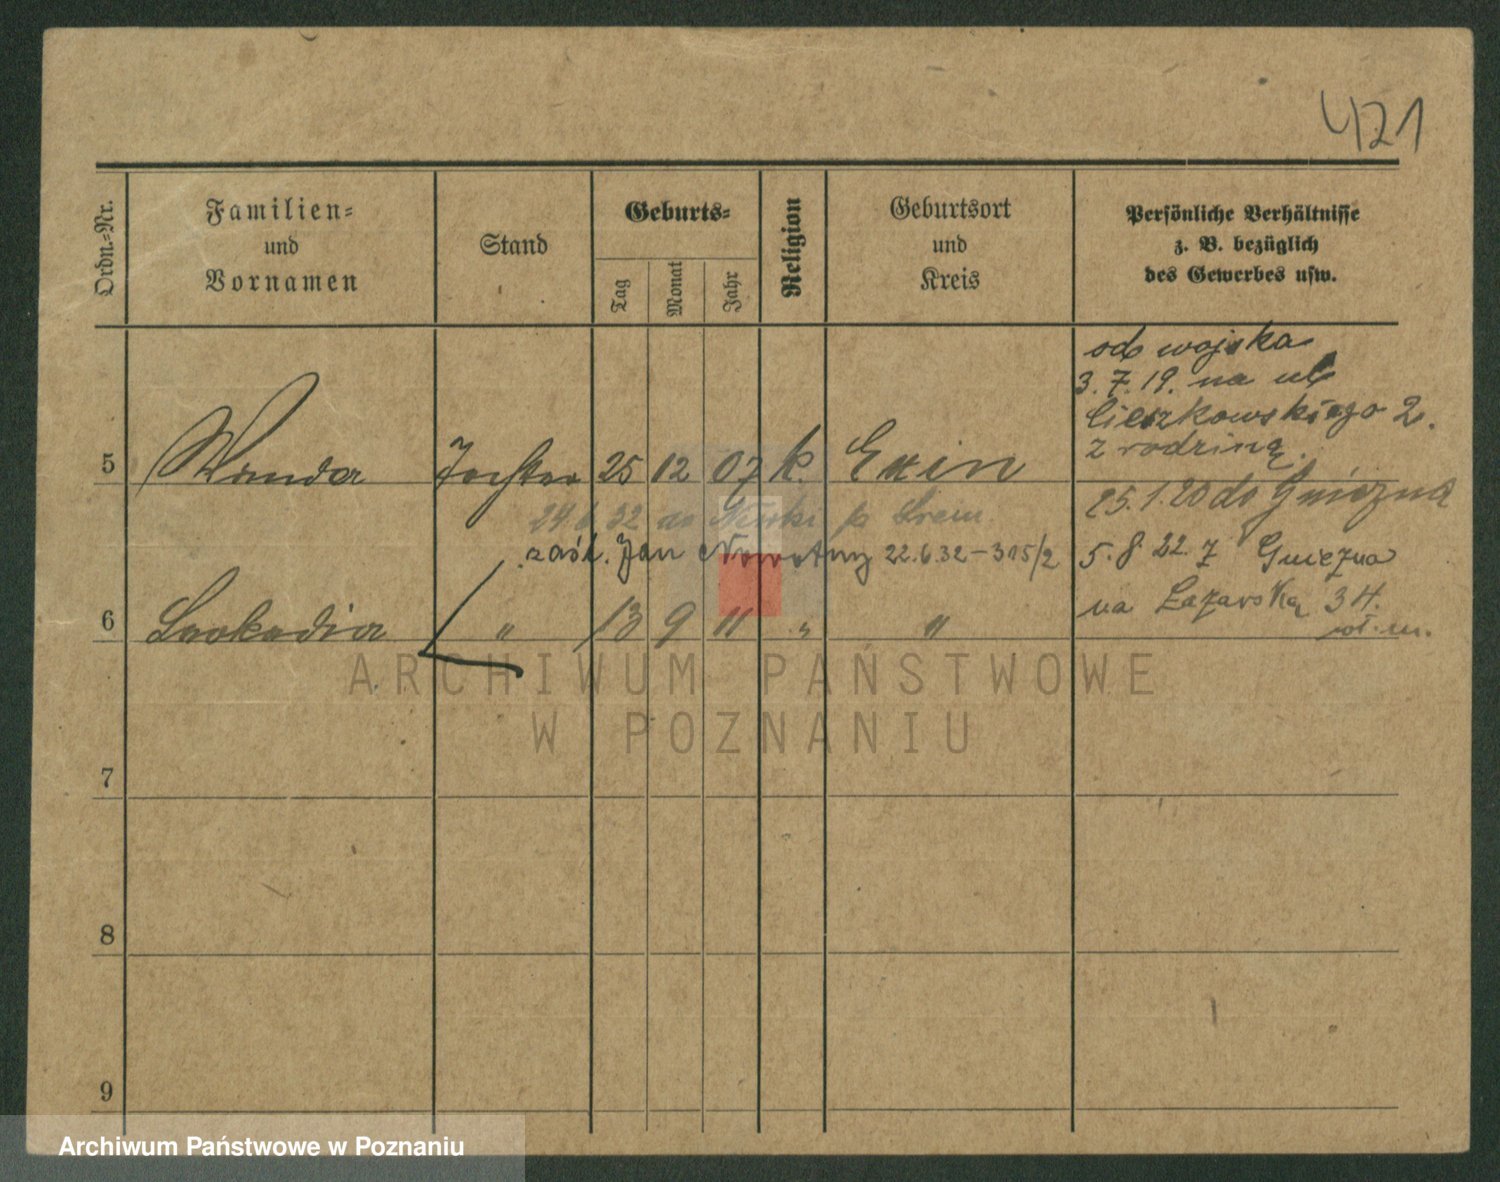 421
Ordn.-Nr.
Familien-
und
Vornamen
Stand
Geburts-
Tag
Monat
Jahr
Religion
Geburtsort
und
Kreis
Persönliche Verhältnisse
z. B. bezüglich
des Gewerbes usw.
od wojska
3.7.19. na ul
Cieszkowskiego 2.
z rodziną.
5 Wanda Tochter 25 12 07 k. Exin
25.1.20 do Gniezna
24.6.32 do p. Śrem
zaśl. Jan Nowotny 22.6.32-315/2
5.8.22. z Gniezna
na Łazarską 34.
6 Leokadia " 13 9 11 " "
ARCHIWUM PAŃSTWOWE
W POZNANIU
7
8
9
Archiwum Państwowe w Poznaniu